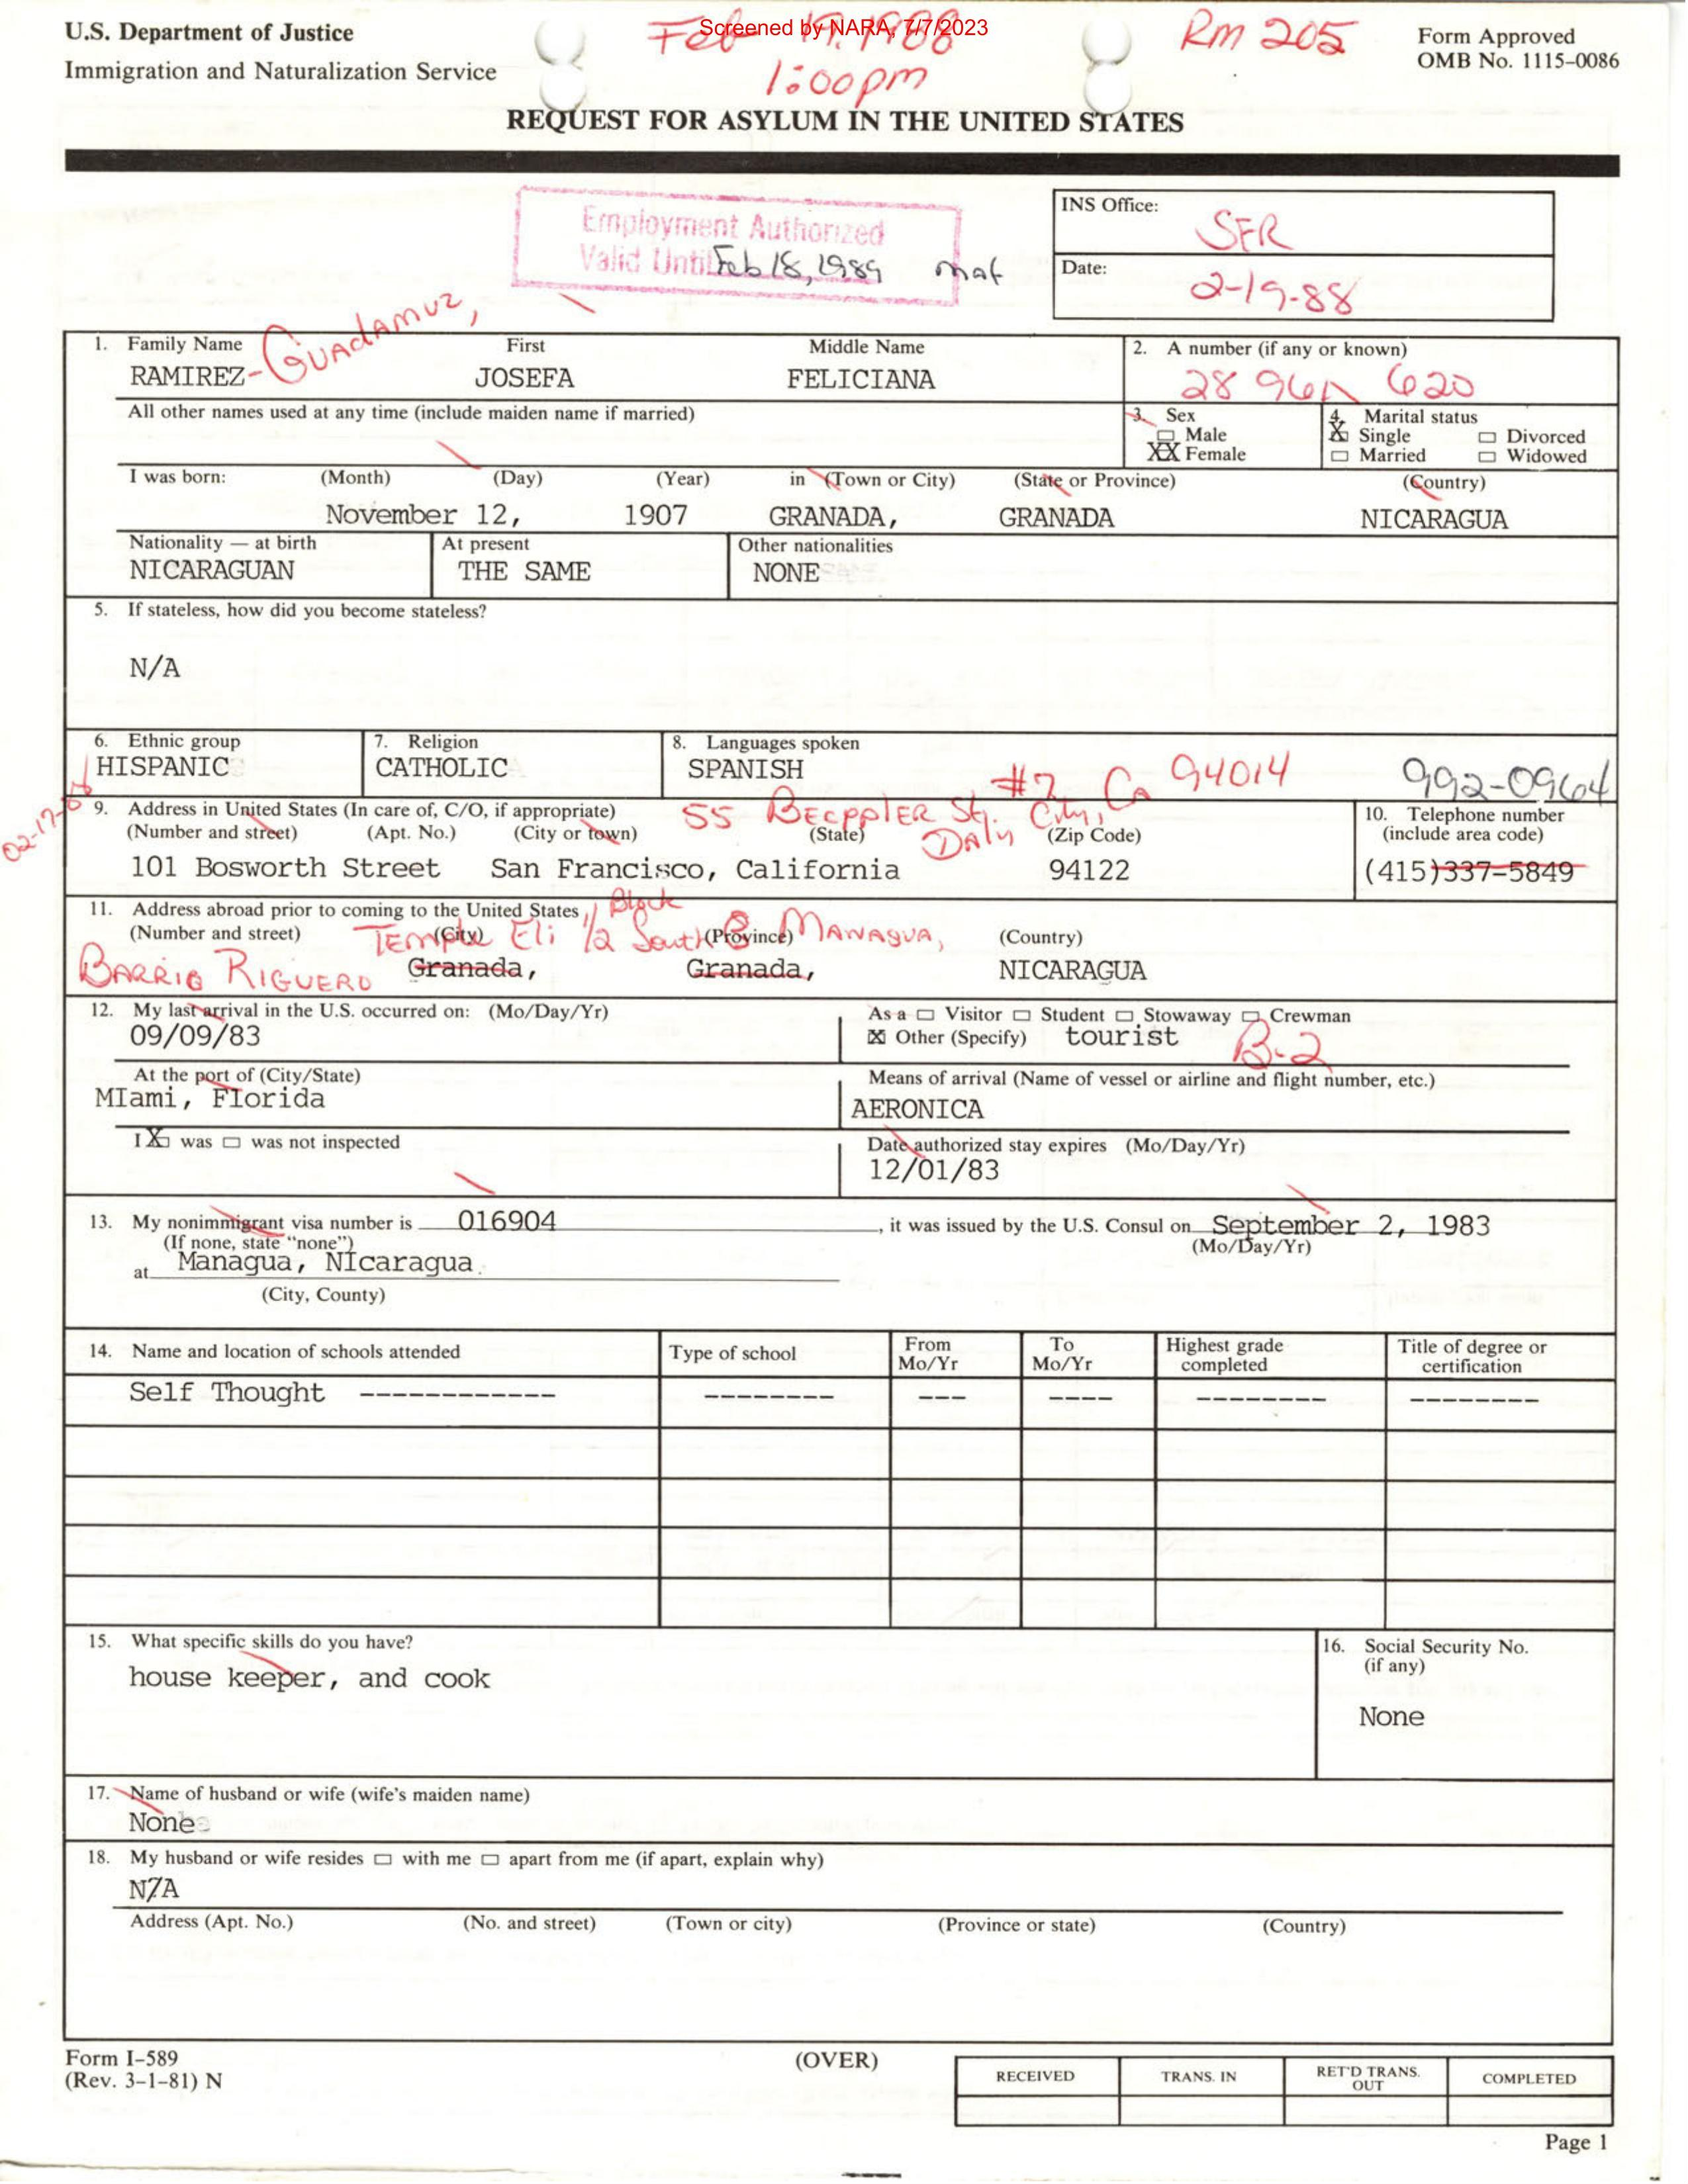 Screened by NARA, 7/7/2023
U.S. Department of Justice
Immigration and Naturalization Service
Feb 19, 1988
1:00pm
RM 205
Form Approved
OMB No. 1115-0086
REQUEST FOR ASYLUM IN THE UNITED STATES
Employment Authorized
Valid Until Feb 18, 1989
INS Office:
SFR
Date:
2-19-88
1. Family Name First Middle Name
RAMIREZ-GUADAMUZ, JOSEFA FELICIANA
2. A number (if any or known)
28 961 620
All other names used at any time (include maiden name if married)
3. Sex
Male
XX Female
4. Marital status
X Single Divorced
Married Widowed
I was born: (Month) (Day) (Year) in (Town or City) (State or Province) (Country)
November 12, 1907 GRANADA, GRANADA NICARAGUA
Nationality — at birth At present Other nationalities
NICARAGUAN THE SAME NONE
5. If stateless, how did you become stateless?
N/A
6. Ethnic group 7. Religion 8. Languages spoken
HISPANIC CATHOLIC SPANISH
#2 Ca 94014 992-0964
9. Address in United States (In care of, C/O, if appropriate) 10. Telephone number
55 BECPPLER St. Daly City,
(Number and street) (Apt. No.) (City or town) (State) (Zip Code) (include area code)
101 Bosworth Street San Francisco, California 94122 (415)337-5849
11. Address abroad prior to coming to the United States
(Number and street) (City) (Province) (Country)
BARRIO RIGUERO TEMPLE Eli 1/2 Block South MANAGUA,
Granada, Granada, NICARAGUA
12. My last arrival in the U.S. occurred on: (Mo/Day/Yr)
09/09/83
As a Visitor Student Stowaway Crewman
X Other (Specify) tourist B-2
At the port of (City/State)
MIami, Florida
Means of arrival (Name of vessel or airline and flight number, etc.)
AERONICA
I X was was not inspected
Date authorized stay expires (Mo/Day/Yr)
12/01/83
13. My nonimmigrant visa number is 016904, it was issued by the U.S. Consul on September 2, 1983
(If none, state "none") (Mo/Day/Yr)
at Managua, NIcaragua
(City, County)
14. Name and location of schools attended Type of school From Mo/Yr To Mo/Yr Highest grade completed Title of degree or certification
Self Thought ------------ -------- --- ---- -------- --------
15. What specific skills do you have?
house keeper, and cook
16. Social Security No.
(if any)
None
17. Name of husband or wife (wife's maiden name)
None
18. My husband or wife resides with me apart from me (if apart, explain why)
N/A
Address (Apt. No.) (No. and street) (Town or city) (Province or state) (Country)
Form I-589
(Rev. 3-1-81) N
(OVER)
RECEIVED TRANS. IN RET'D TRANS. OUT COMPLETED
Page 1